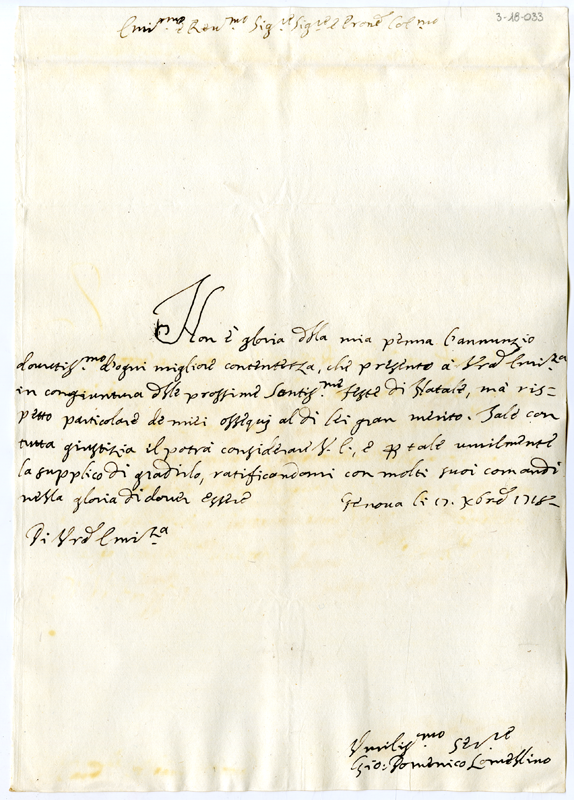 3-18-033
Emi.mo e Reu.mo Sig.re Sig.re e Prone Col.mo
Non è gloria della mia penna l'annunzio
douutiss.mo d'ogni migliore contentezza, che presento à Vrã Emi.za
in congiuntura delle prossime Santiss.me feste di Natale, mà ris-
petto particolare de miei ossequij al di lei gran merito. Tale con
tutta giustizia il potrà considerare V. E., e per tale umilmente
la supplico di gradirlo, ratificandomi con molti suoi comandi
nella gloria di douer essere Genova li 17. Xbre 1718
Di Vrã Emi.za
Vmiliss.mo Ser.re
Gio: Domenico Lomellino